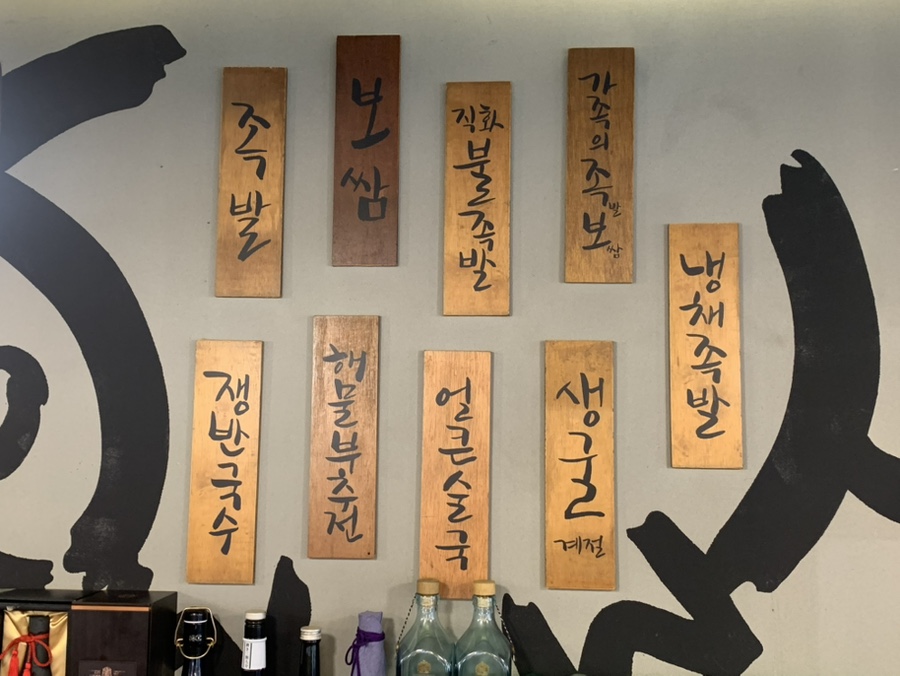 족발
보쌈
직화
불족발
가족의
족발
보쌈
냉채족발
쟁반국수
해물부추전
얼큰술국
생굴
계절